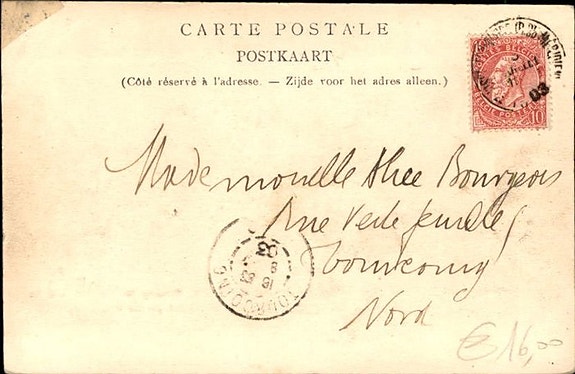 CARTE POSTALE
POSTKAART
(Côté réservé à l'adresse. — Zijde voor het adres alleen.)
10
03
Mademoiselle Bourgeois
Rue Verte
Tourcoing
Nord
TOURCOING
€16,00